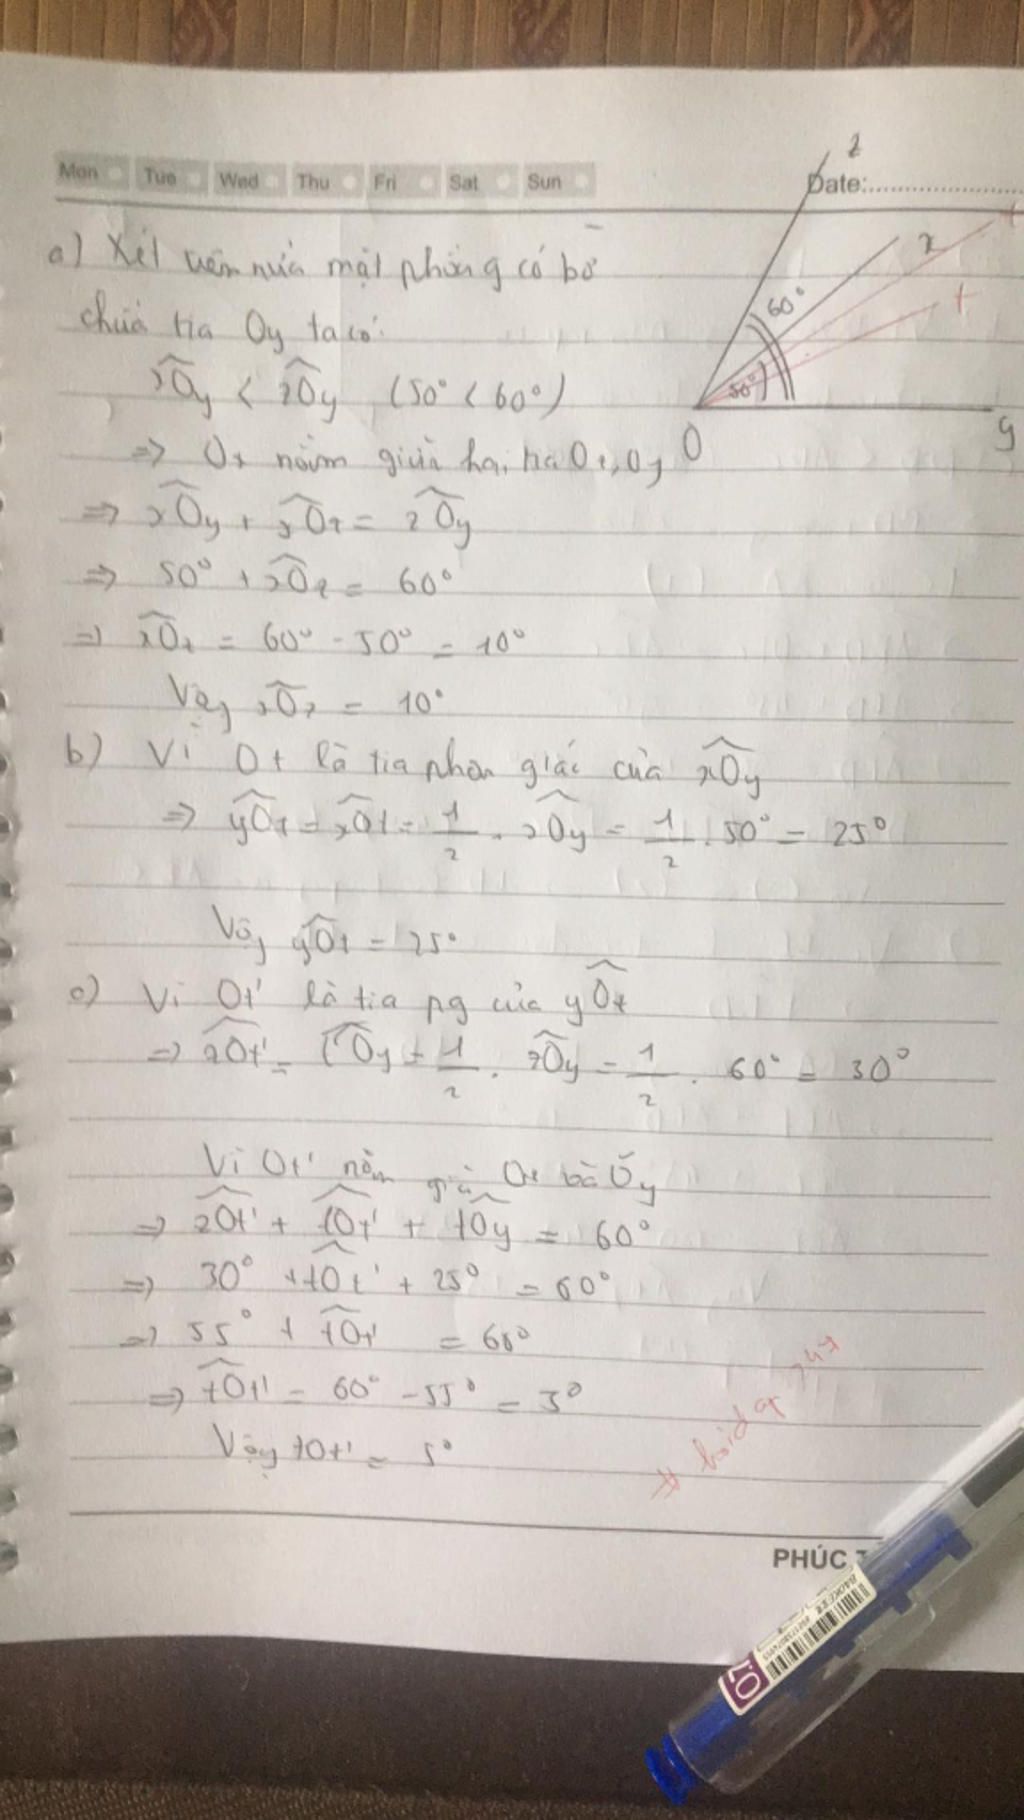 Mon Tue Wed Thu Fri Sat Sun
Date:
z
x
t
60°
50°
O
y
a) Xét trên nửa mặt phẳng có bờ
chứa tia Oy ta có:
xOy < zOy (50° < 60°)
=> Ox nằm giữa hai tia Oz, Oy
=> xOy + xOz = zOy
=> 50° + xOz = 60°
=> xOz = 60° - 50° = 10°
Vậy xOz = 10°
b) Vì Ot là tia phân giác của xOy
=> yOt = xOt = 1/2 . xOy = 1/2 . 50° = 25°
Vậy yOt = 25°
c) Vì Ot' là tia pg của yOz
=> zOt' = t'Oy = 1/2 . zOy = 1/2 . 60° = 30°
Vì Ot' nằm giữa Oz và Oy
=> zOt' + tOt' + tOy = 60°
=> 30° + tOt' + 25° = 60°
=> 55° + tOt' = 60°
=> tOt' = 60° - 55° = 5°
Vậy tOt' = 5°
PHÚC